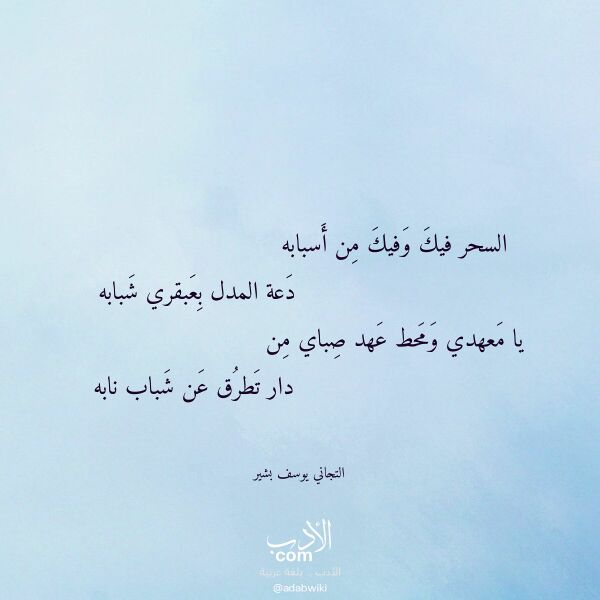 السحر فيكَ وَفيكَ مِن أَسبابه
دَعة المدل بِعَبقري شَبابه
يا مَعهدي وَمَحط عَهد صِباي مِن
دار تَطرُق عَن شَباب نابه
التجاني يوسف بشير
الأدب
com
الأدب .. بلغة عربية
@adabwiki